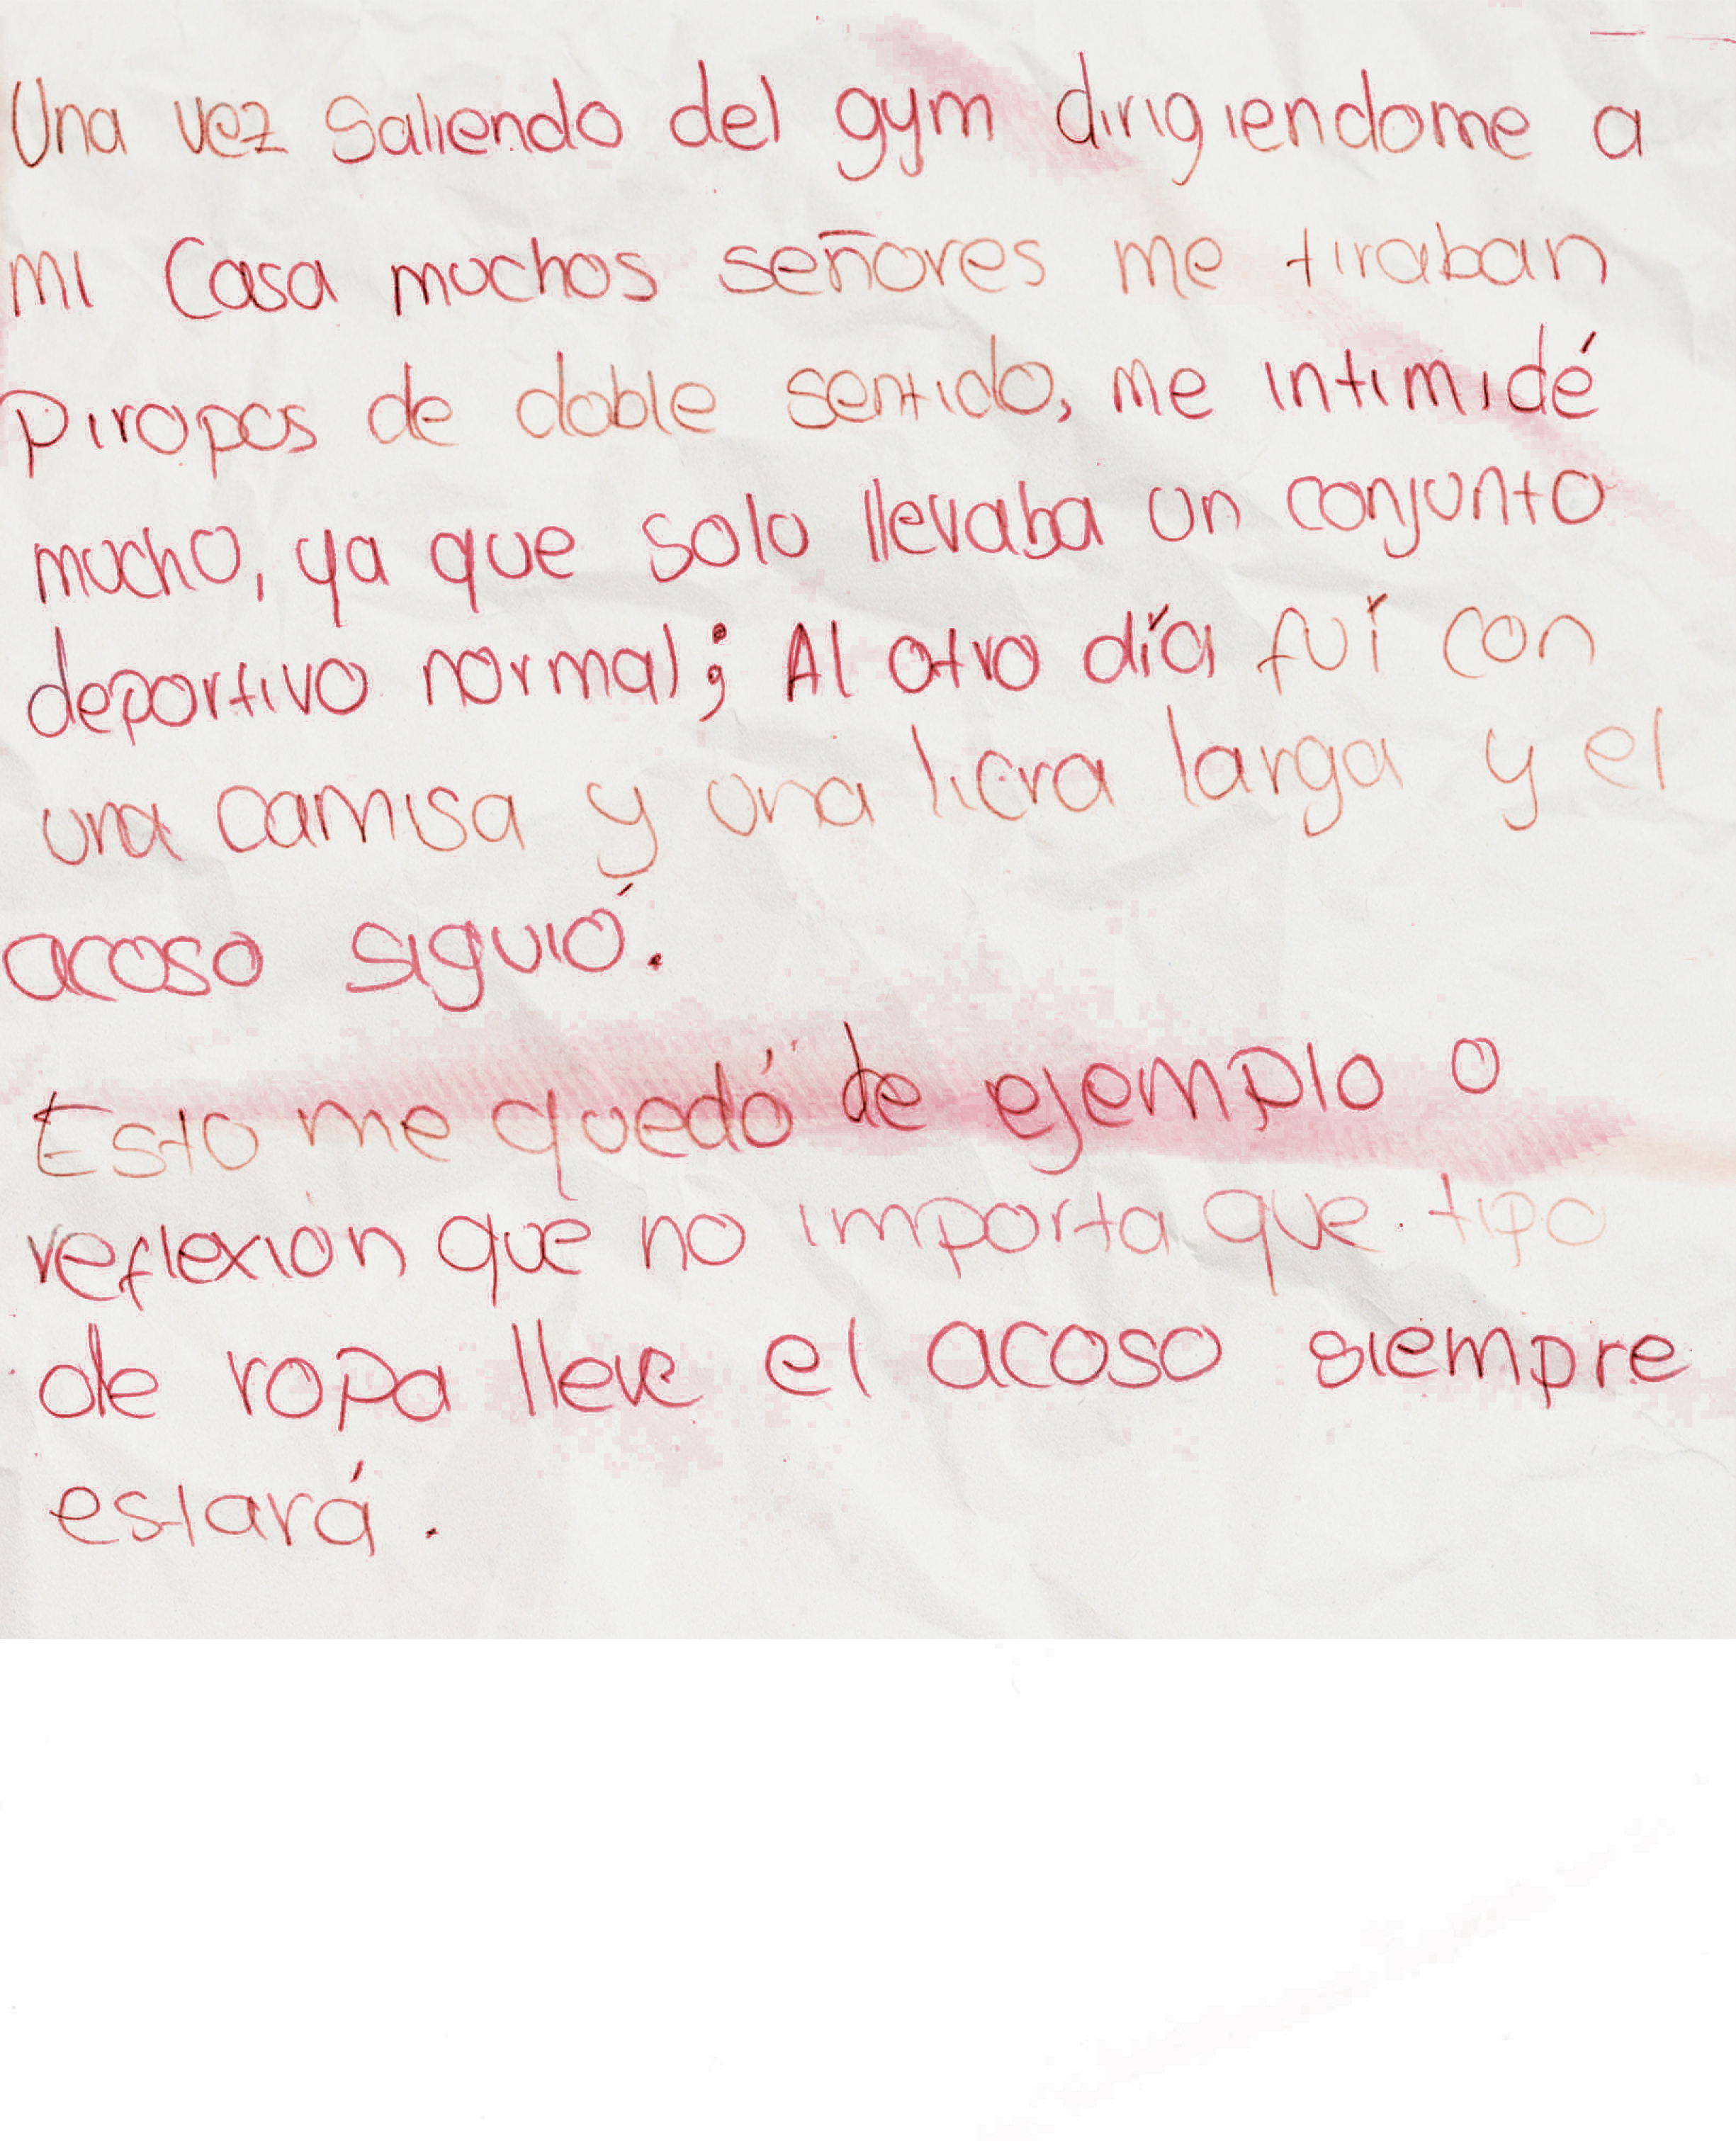 Una vez saliendo del gym dirigiendome a
mi Casa muchos señores me tiraban
piropos de doble sentido, me intimidé
mucho, ya que solo llevaba un conjunto
deportivo normal; Al otro día fuí con
una camisa y una licra larga y el
acoso siguió.
Esto me quedó de ejemplo o
reflexión que no importa que tipo
de ropa lleve el acoso siempre
estará.